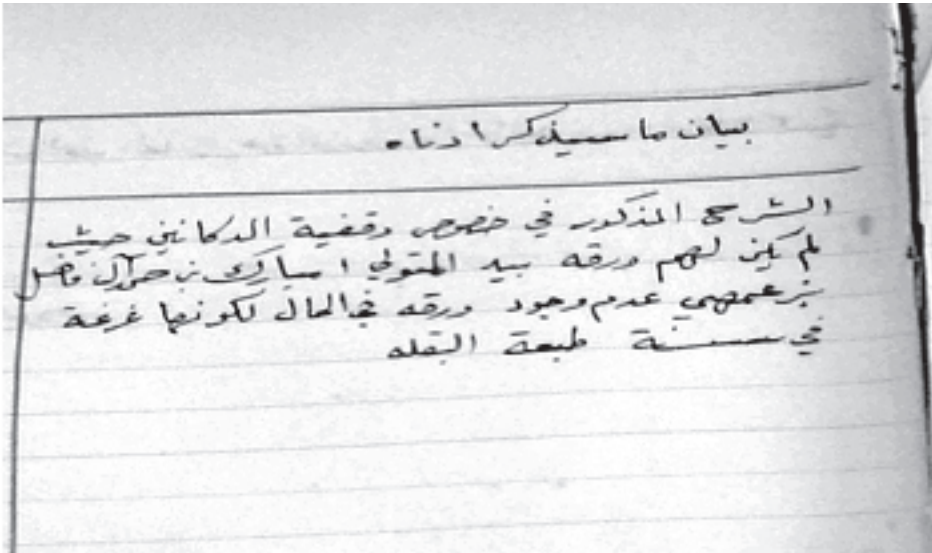 بيان ما سيذكر ادناه
الشرح المذكور في خصوص وقفية الدكانين حيث
لم يكن لهم ورقه بيد المتولي امبارك بن حمد آل فاضل
بزعمهم عدم وجود ورقه في الحال لكونها غرقة
في سنة طبعة البقله